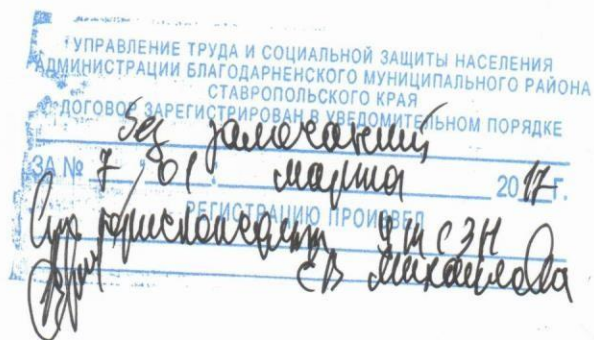 УПРАВЛЕНИЕ ТРУДА И СОЦИАЛЬНОЙ ЗАЩИТЫ НАСЕЛЕНИЯ
АДМИНИСТРАЦИИ БЛАГОДАРНЕНСКОГО МУНИЦИПАЛЬНОГО РАЙОНА
СТАВРОПОЛЬСКОГО КРАЯ
ДОГОВОР ЗАРЕГИСТРИРОВАН В УВЕДОМИТЕЛЬНОМ ПОРЯДКЕ
без замечаний
ЗА № 7, "01" марта 2017 Г.
РЕГИСТРАЦИЮ ПРОИЗВЕЛ
юрисконсульт УТСЗН
Михайлова